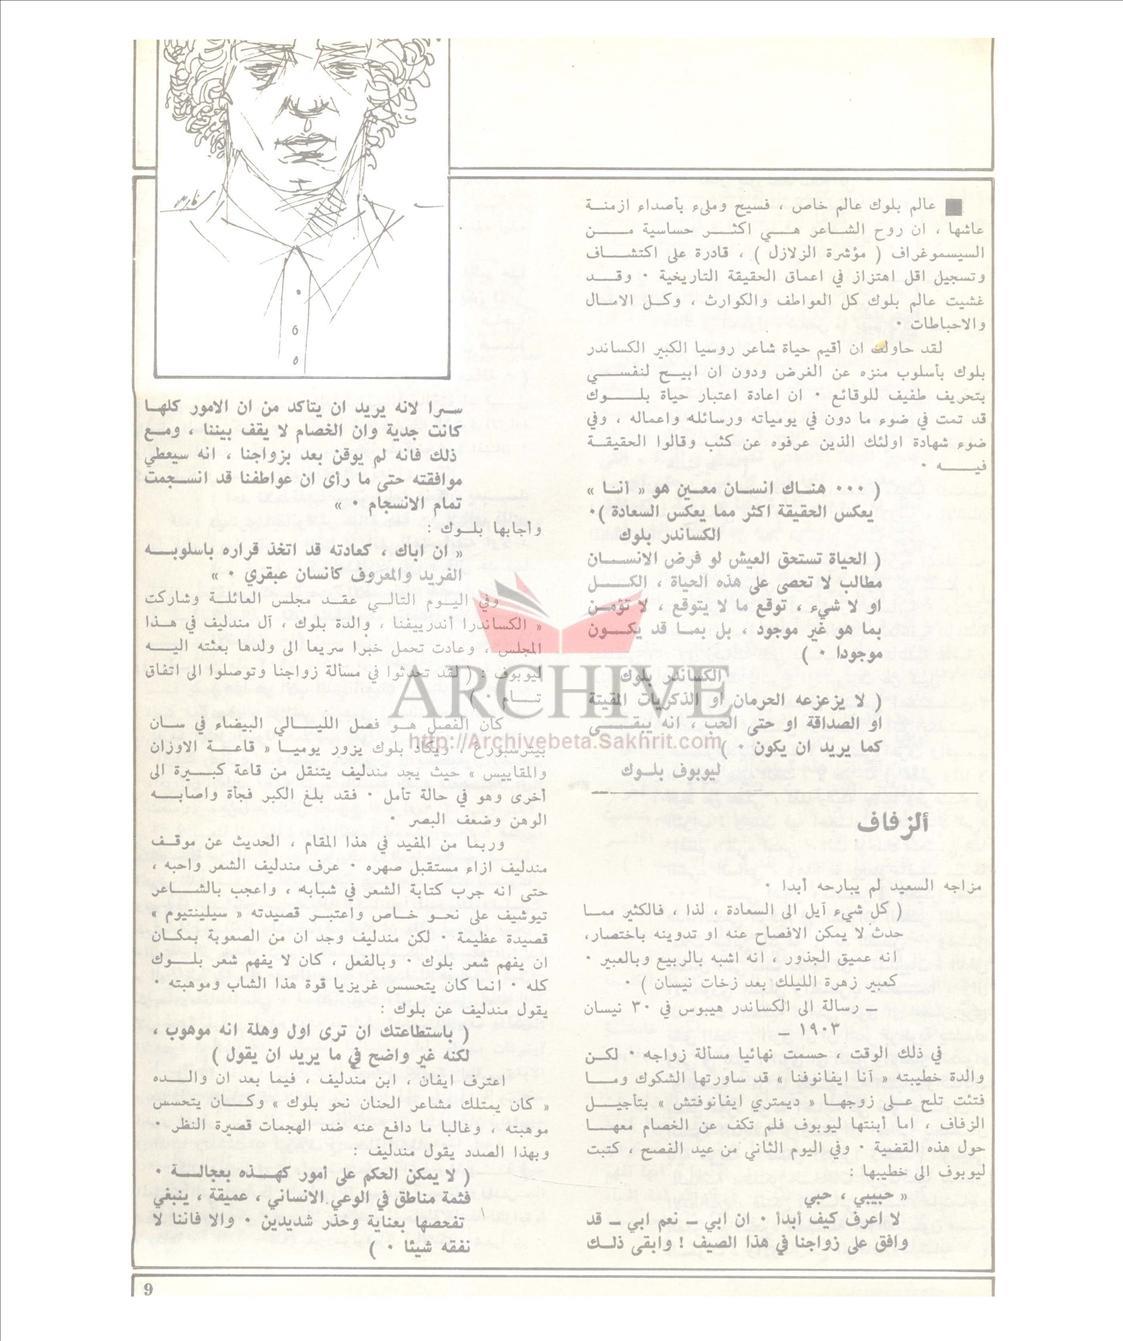 ■ عالم بلوك عالم خاص ، فسيح وملىء بأصداء ازمنة
عاشها ، ان روح الشاعر هي اكثر حساسية من
السيسموغراف ( مؤشرة الزلازل ) ، قادرة على اكتشاف
وتسجيل اقل اهتزاز في اعماق الحقيقة التاريخية ٠ وقد
غشيت عالم بلوك كل العواطف والكوارث ، وكل الامال
والاحباطات ٠
لقد حاولت ان أقيم حياة شاعر روسيا الكبير الكساندر
بلوك بأسلوب منزه عن الغرض ودون ان ابيح لنفسي
بتحريف طفيف للوقائع ٠ ان اعادة اعتبار حياة بلوك
قد تمت في ضوء ما دون في يومياته ورسائله واعماله ، وفي
ضوء شهادة اولئك الذين عرفوه عن كثب وقالوا الحقيقة
فيه ٠
( ٠٠٠ هناك انسان معين هو « أنا »
يعكس الحقيقة اكثر مما يعكس السعادة )٠
الكساندر بلوك
( الحياة تستحق العيش لو فرض الانسان
مطالب لا تحصى على هذه الحياة ، الكل
او لا شيء ، توقع ما لا يتوقع ، لا تؤمن
بما هو غير موجود ، بل بما قد يكون
موجودا ٠ )
الكساندر بلوك
( لا يزعزعه الحرمان او الذكريات المقيتة
او الصداقة او حتى الحب ، انه يبقى
كما يريد ان يكون ٠ )
ليوبوف بلوك
ألزفاف
مزاجه السعيد لم يبارحه أبدا ٠
( كل شيء آيل الى السعادة ، لذا ، فالكثير مما
حدث لا يمكن الافصاح عنه او تدوينه باختصار،
انه عميق الجذور ، انه اشبه بالربيع وبالعبير ٠
كعبير زهرة الليلك بعد زخات نيسان ) ٠
ــ رسالة الى الكساندر هيبوس في ٣٠ نيسان
١٩٠٣ ــ
في ذلك الوقت ، حسمت نهائيا مسألة زواجه ٠ لكن
والدة خطيبته « أنا ايفانوفنا » قد ساورتها الشكوك وما
فتئت تلح على زوجها « ديمتري ايفانوفتش » بتأجيل
الزفاف ، اما أبنتها ليوبوف فلم تكف عن الخصام معها
حول هذه القضية ٠ وفي اليوم الثاني من عيد الفصح ، كتبت
ليوبوف الى خطيبها :
« حبيبي ، حبي
لا اعرف كيف أبدأ ٠ ان ابي ــ نعم ابي ــ قد
وافق على زواجنا في هذا الصيف ! وابقى ذلك
سرا لانه يريد ان يتاكد من ان الامور كلها
كانت جدية وان الخصام لا يقف بيننا ، ومع
ذلك فانه لم يوقن بعد بزواجنا ، انه سيعطي
موافقته حتى ما رأى ان عواطفنا قد انسجمت
تمام الانسجام ٠ »
وأجابها بلوك :
« ان اباك ، كعادته قد اتخذ قراره باسلوبه
الفريد والمعروف كانسان عبقري ٠ »
وفي اليوم التالي عقد مجلس العائلة وشاركت
« الكساندرا أندرييفنا ، والدة بلوك ، آل مندليف في هذا
المجلس ، وعادت تحمل خبرا سريعا الى ولدها بعثته اليه
ليوبوف : ( لقد تحدثوا في مسألة زواجنا وتوصلوا الى اتفاق
تام ٠
ARCHIVE
http://Archivebeta.Sakhrit.com
كان الفصل هو فصل الليالي البيضاء في سان
بيترسبورغ ، ويكاد بلوك يزور يوميا « قاعة الاوزان
والمقاييس » حيث يجد مندليف يتنقل من قاعة كبيرة الى
أخرى وهو في حالة تأمل ٠ فقد بلغ الكبر فجأة واصابه
الوهن وضعف البصر ٠
وربما من المفيد في هذا المقام ، الحديث عن موقف
مندليف ازاء مستقبل صهره ٠ عرف مندليف الشعر واحبه ،
حتى انه جرب كتابة الشعر في شبابه ، واعجب بالشاعر
تيوشيف على نحو خاص واعتبر قصيدته « سيلينتيوم »
قصيدة عظيمة ٠ لكن مندليف وجد ان من الصعوبة بمكان
ان يفهم شعر بلوك ٠ وبالفعل ، كان لا يفهم شعر بلوك
كله ٠ انما كان يتحسس غريزيا قوة هذا الشاب وموهبته ٠
يقول مندليف عن بلوك :
( باستطاعتك ان ترى اول وهلة انه موهوب ،
لكنه غير واضح في ما يريد ان يقول )
اعترف ايفان ، ابن مندليف ، فيما بعد ان والده
« كان يمتلك مشاعر الحنان نحو بلوك » وكان يتحسس
موهبته ، وغالبا ما دافع عنه ضد الهجمات قصيرة النظر ٠
وبهذا الصدد يقول مندليف :
( لا يمكن الحكم على أمور كهذه بعجالة ٠
فثمة مناطق في الوعي الانساني ، عميقة ، ينبغي
تفحصها بعناية وحذر شديدين ٠ والا فاننا لا
نفقه شيئا ٠ )
9